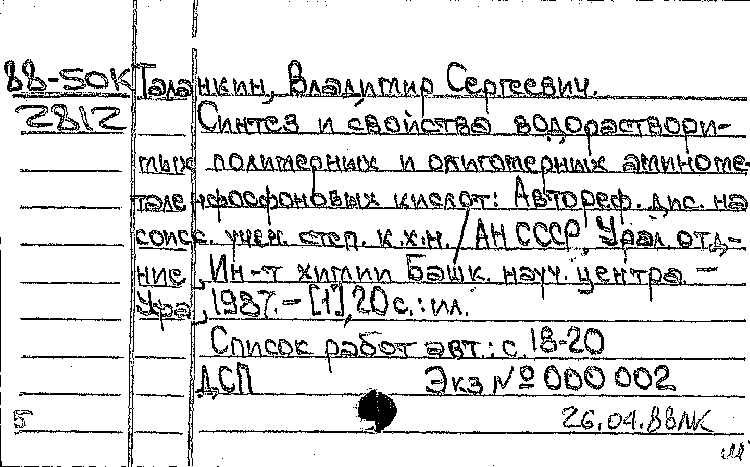 88-50К Таланкин, Владимир Сергеевич.
2812 Синтез и свойства водораствори-
мых полимерных и олигомерных аминоме-
таленфосфоновых кислот: Автореф. дис. на
соиск. учен. степ. к.х.н. / АН СССР, Урал. отд-
ние, Ин-т химии Башк. науч. центра. –
Уфа, 1987. – [1], 20 с. : ил.
Список работ авт.: с. 18-20
ДСП Экз № 000 002
Б 26.04.88